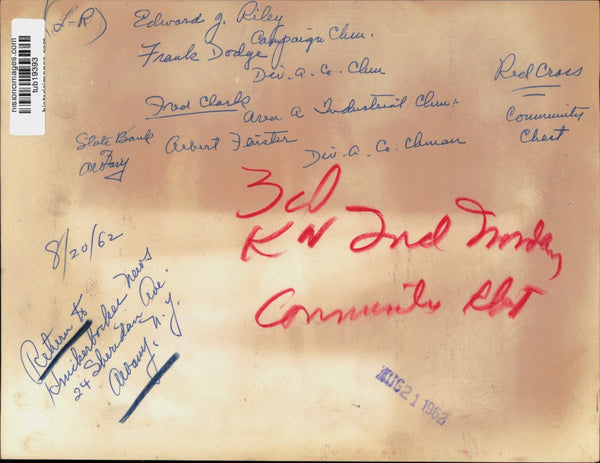 (L-R)
Edward J. Riley
Campaign Chm.
Frank Dodge
Div. A. Co. Chm
Red Cross
Fred Clark
Area A Industrial Chm.
Community
Chest
State Bank
of Albany
Albert Feister
Div. A. Co. Chman
8/20/62
Return to
Knickerbocker News
24 Sheridan Ave.
Albany, N.Y.
3cl
KN 2nd Monday
Community Chest
AUG 21 1962
nispromages.com
tub19393